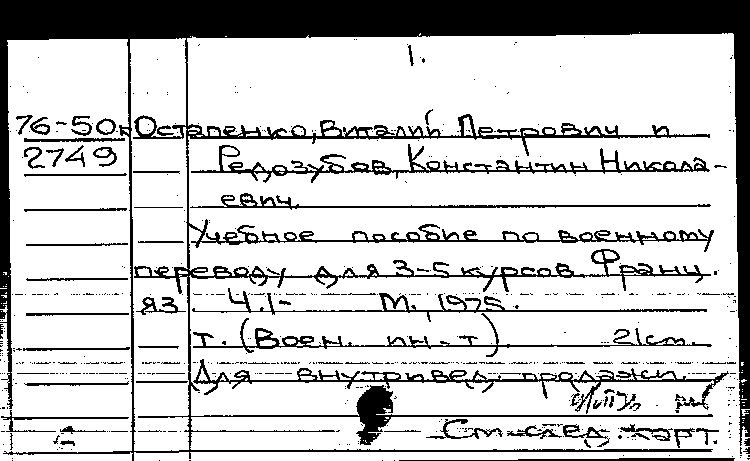 1.
76-50к Остапенко, Виталий Петрович и
2749 Редозубов, Константин Никола-
евич.
Учебное пособие по военному
переводу для 3-5 курсов. Франц.
яз. Ч.1- М., 1975.
т. (Воен. ин-т). 21см.
Для внутривед. продажи.
См. след. карт.